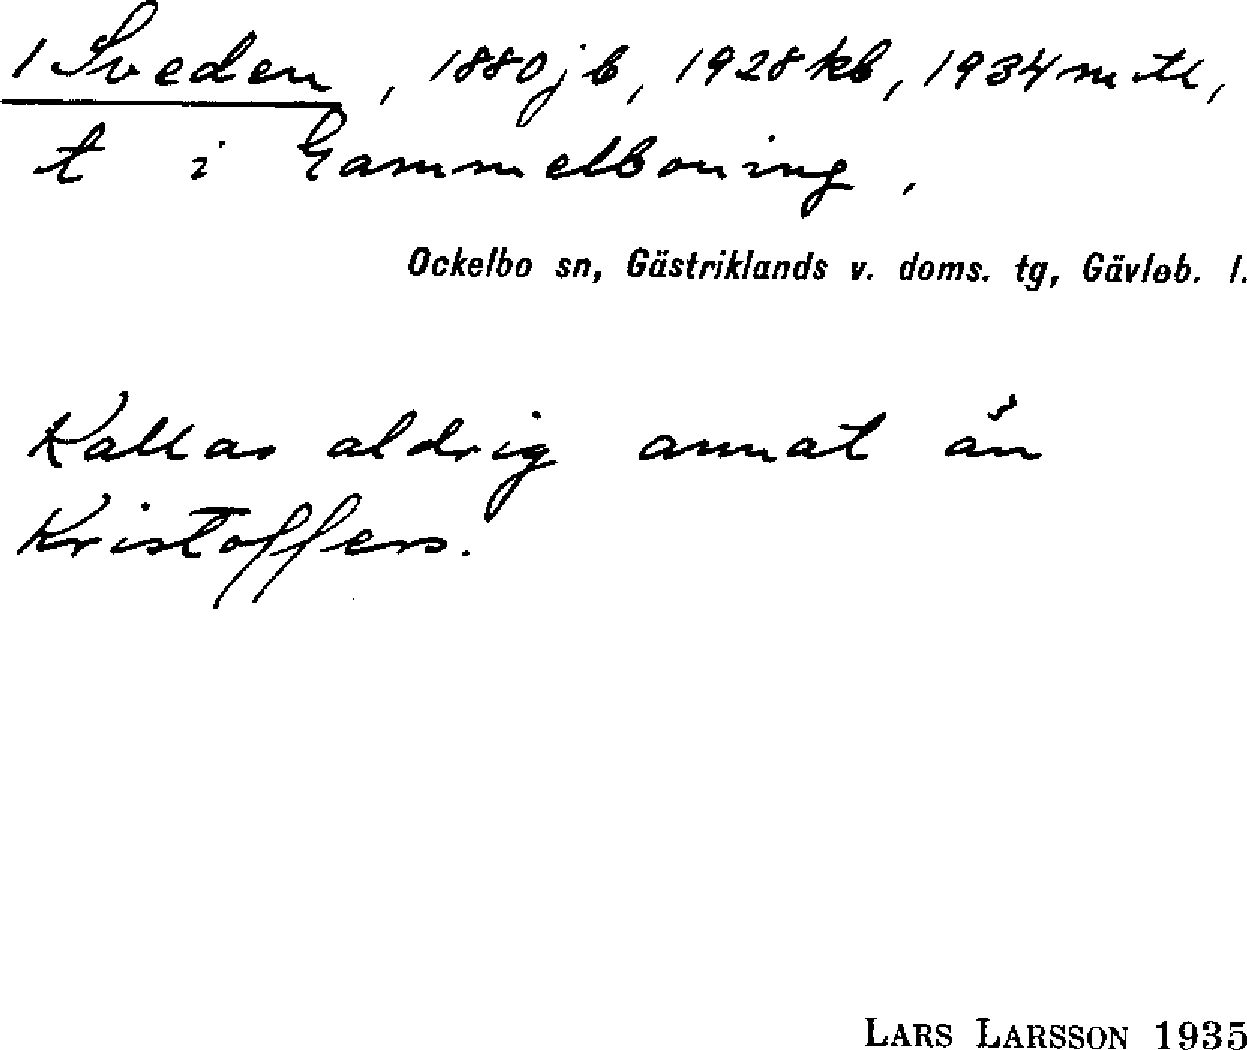 1 Sveden, 1880 jb, 1928 kb, 1934 mtl,
t i Gammelboning,
Ockelbo sn, Gästriklands v. doms. tg, Gävleb. l.
Kallas aldrig annat än
Kristoffers.
LARS LARSSON 1935